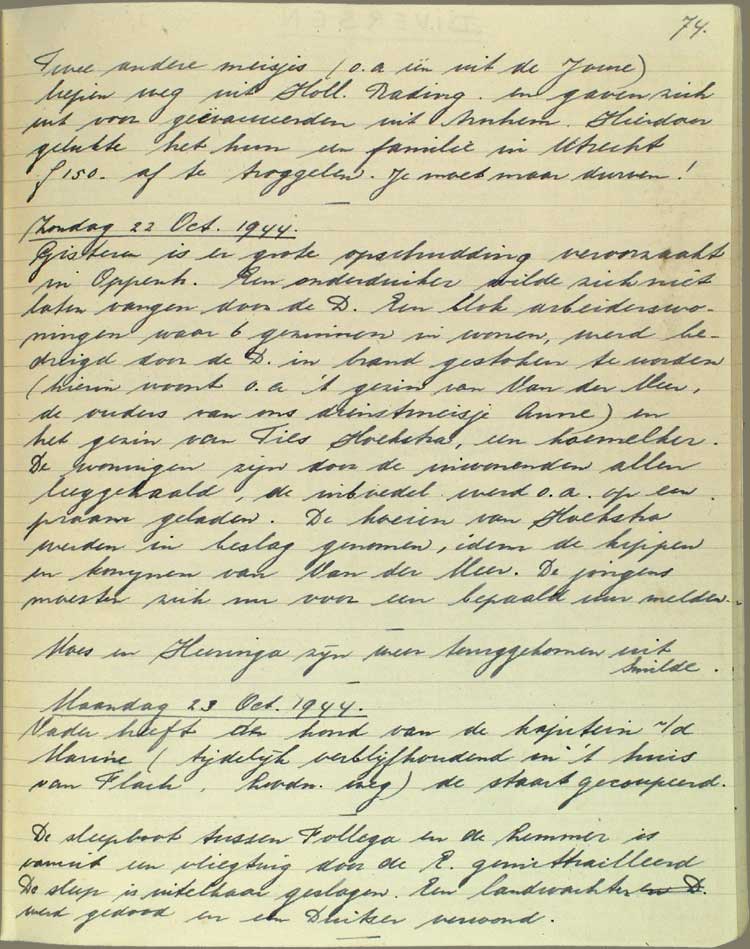 74.
Twee andere meisjes (o.a één uit de Joure)
liepen weg uit Holl. Rading. en gaven zich
uit voor geëvacueerden uit Arnhem. Hierdoor
gelukte het hun een familie in Utrecht
f 150.- af te troggelen. Je moet maar durven!
Zondag 22 Oct. 1944.
Gisteren is er grote opschudding veroorzaakt
in Oppenh. Een onderduiker wilde zich niet
laten vangen door de D. Een blok arbeiderswo-
ningen waar 6 gezinnen in wonen, werd be-
dreigd door de D. in brand gestoken te worden
(hierin woont o.a 't gezin van Van der Meer,
de ouders van ons dienstmeisje Anne) en
het gezin van Ties Hoekstra, een koemelker.
De woningen zijn door de inwonenden allen
leeggehaald, de inboedel werd o.a. op een
praam geladen. De koeien van Hoekstra
werden in beslag genomen, idem de kippen
en konijnen van Van der Meer. De jongens
moesten zich nu voor een bepaald uur melden.
Moes en Heeringa zijn weer teruggekomen uit
Smilde.
Maandag 23 Oct. 1944.
Vader heeft de hond van de kapitein v/d
Marine (tijdelijk verblijfhoudend in 't huis
van Flach, weg) de staart gecoupeerd.
De sleepboot tussen Follega en de Lemmer is
vanuit een vliegtuig door de E. gemitrailleerd
De sleep is uit elkaar geslagen. Een landwachter en D.
werd gedood en een Duitser verwond.